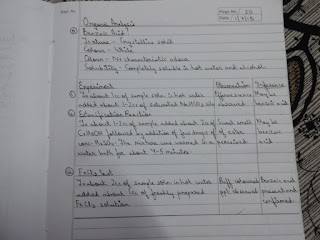 Page No. 20
Date: 1/7/15
Organic Analysis
Benzoic Acid
Texture - Crystalline solid
Colour - White
Odour - No characteristic odour
Solubility - Completely soluble in hot water and alcohol.
Experiment Observation Inference
In about 1cc of sample soln in hot water Effervescence May be
added about 1-2cc of saturated NaHCO3 soln observed benzoic acid
Esterification Reaction
In about 1-2cc of sample added about 1cc of Sweet smell May be
C2H5OH followed by addition of few drops of of ester benzoic
conc. H2SO4. The mixture was warmed in a perceived acid
water bath for about 4-5 minutes
FeCl3 test
In about 2cc of sample soln in hot water Buff coloured Benzoic acid
added about 1cc of freshly prepared ppt. observed present and
FeCl3 solution confirmed.